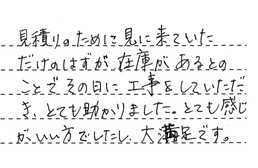 見積り。ために見に来ていた
だけのはずが、在庫があるとの
ことでその日に工事をしていただ
き、とても助かりました。とても感じ
がいい方でしたし、大満足です。